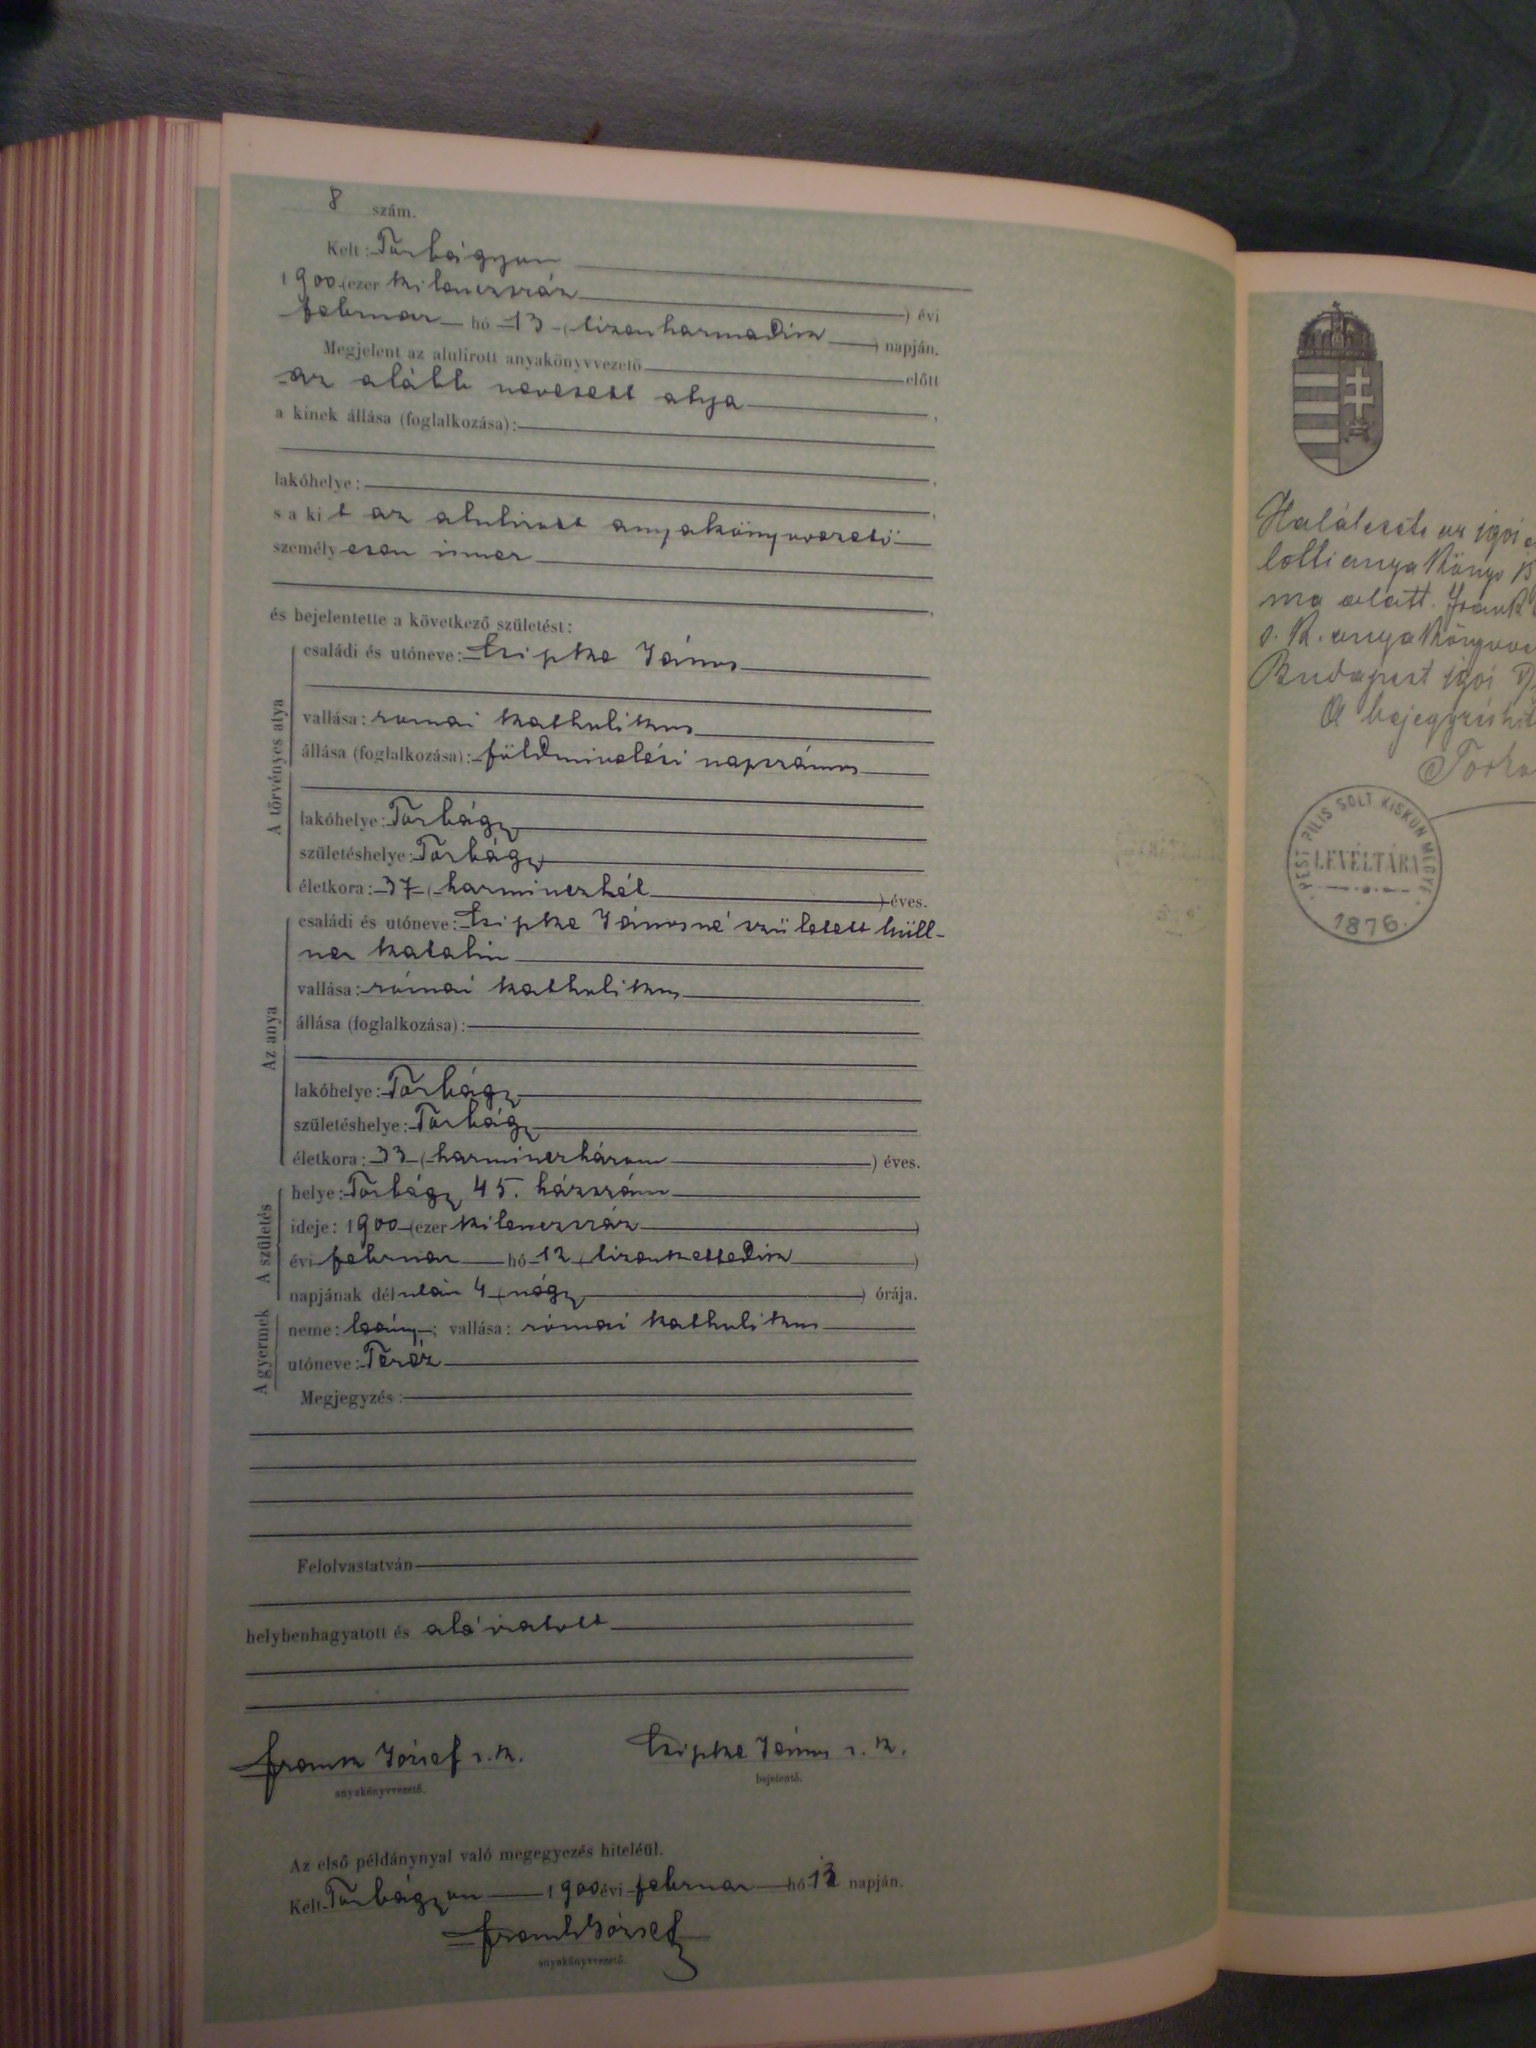 8 szám.
Kelt: Torbágyon
1900 (ezer kilenczszáz ) évi
februar hó 13 (tizenharmadik ) napján.
Megjelent az alulirott anyakönyvvezető előtt
az alább nevezett atya ,
a kinek állása (foglalkozása):
lakóhelye: ,
s a kit az alulirott anyakönyvvezető
személyesen ismer ,
és bejelentette a következő születést:
A törvényes atya
családi és utóneve: Czipke János
vallása: romai katholikus
állása (foglalkozása): földmivelési napszámos
lakóhelye: Torbágy
születéshelye: Torbágy
életkora: 37 (harminczhét ) éves.
Az anya
családi és utóneve: Czipke Jánosné született hüll-
ner Katalin
vallása: római katholikus
állása (foglalkozása):
lakóhelye: Torbágy
születéshelye: Torbágy
életkora: 33 (harminczhárom ) éves.
A születés
helye: Torbágy 45. házszám
ideje: 1900 (ezer kilenczszáz )
évi februar hó 12 (tizenkettedik )
napjának délután 4 (négy ) órája.
A gyermek
neme: leány; vallása: római katholikus
utóneve: Teréz
Megjegyzés:
Felolvastatván
helybenhagyatott és aláiratott
Frank József s. k. Czipke János s. k.
anyakönyvvezető. bejelentő.
Az első példánynyal való megegyezés hiteléűl.
Kelt Torbágyon 1900 évi februar hó 13 napján.
Frank József
anyakönyvvezető.
Halálesete az 1901
lotti anyakönyv
ma alatt. Frank
s. k. anyakönyvve
Budapest 1901
A bejegyzés hit
PEST PILIS SOLT KISKUN MEGYE
LEVÉLTÁRA
1876.